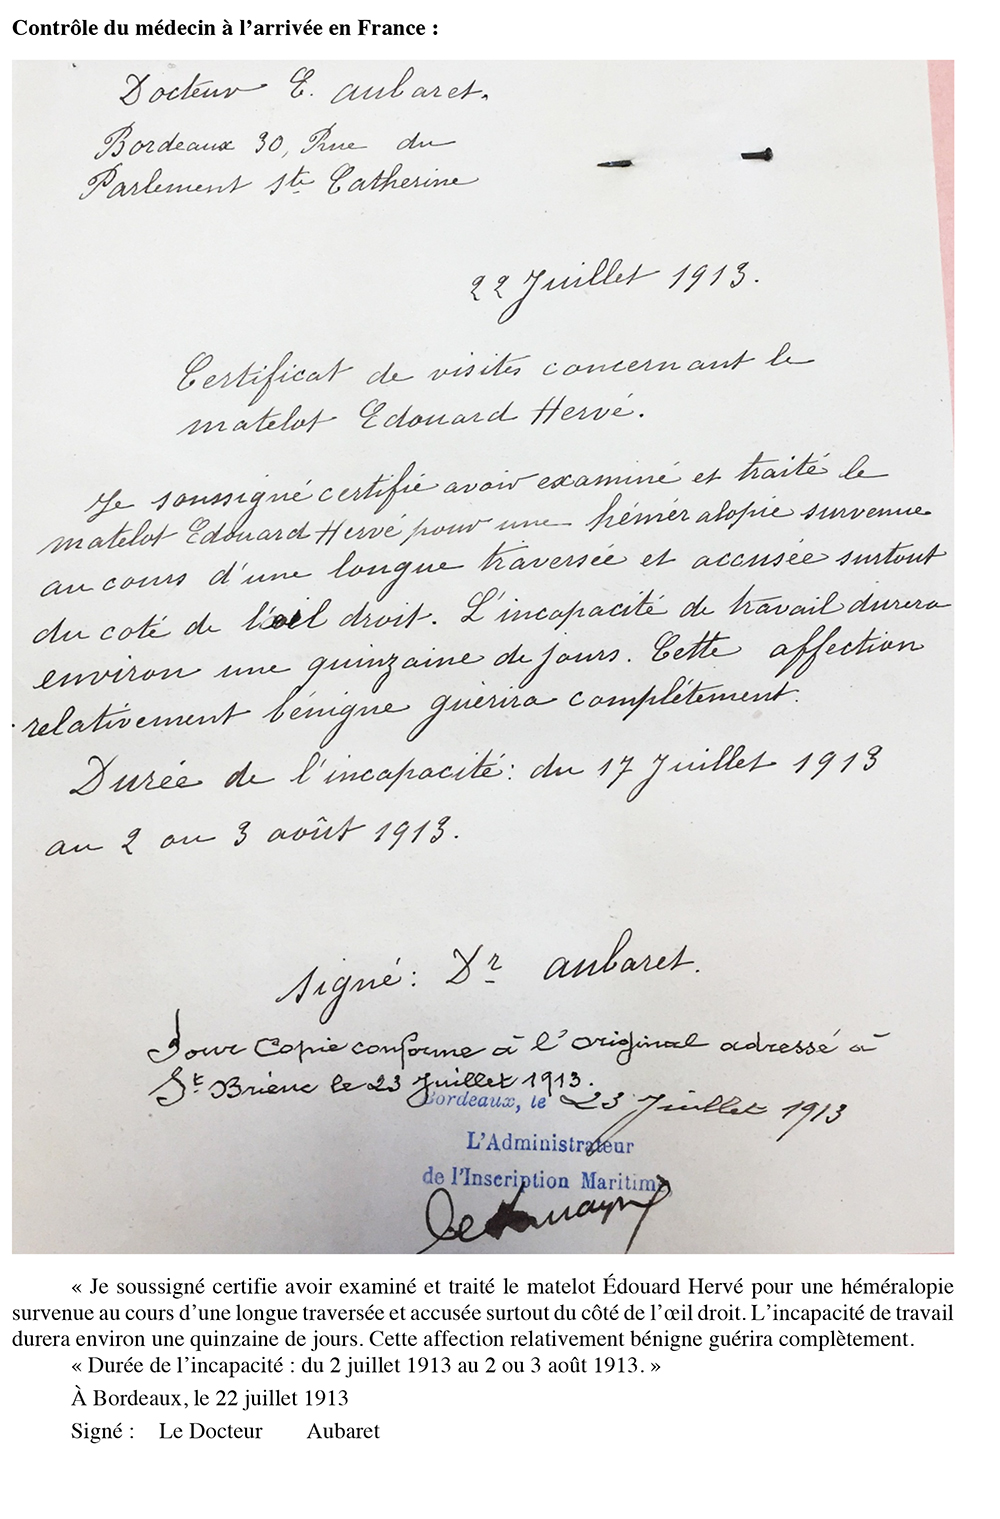 Contrôle du médecin à l’arrivée en France :
Docteur E. Aubaret.
Bordeaux 30, Rue du
Parlement Ste Catherine
22 Juillet 1913.
Certificat de visites concernant le
matelot Edouard Hervé.
Je soussigné certifie avoir examiné et traité le
matelot Edouard Hervé pour une héméralopie survenue
au cours d'une longue traversée et accusée surtout
du coté de l'œil droit. L'incapacité de travail durera
environ une quinzaine de jours. Cette affection
relativement bénigne guérira complétement.
Durée de l'incapacité: du 17 Juillet 1913
au 2 ou 3 août 1913.
Signé: Dr Aubaret.
Pour Copie conforme à l'original adressé à
St Brieuc le 23 Juillet 1913.
Bordeaux, le 23 Juillet 1913
L'Administrateur
de l'Inscription Maritime
« Je soussigné certifie avoir examiné et traité le matelot Édouard Hervé pour une héméralopie
survenue au cours d’une longue traversée et accusée surtout du côté de l’œil droit. L’incapacité de travail
durera environ une quinzaine de jours. Cette affection relativement bénigne guérira complètement.
« Durée de l’incapacité : du 2 juillet 1913 au 2 ou 3 août 1913. »
À Bordeaux, le 22 juillet 1913
Signé : Le Docteur Aubaret